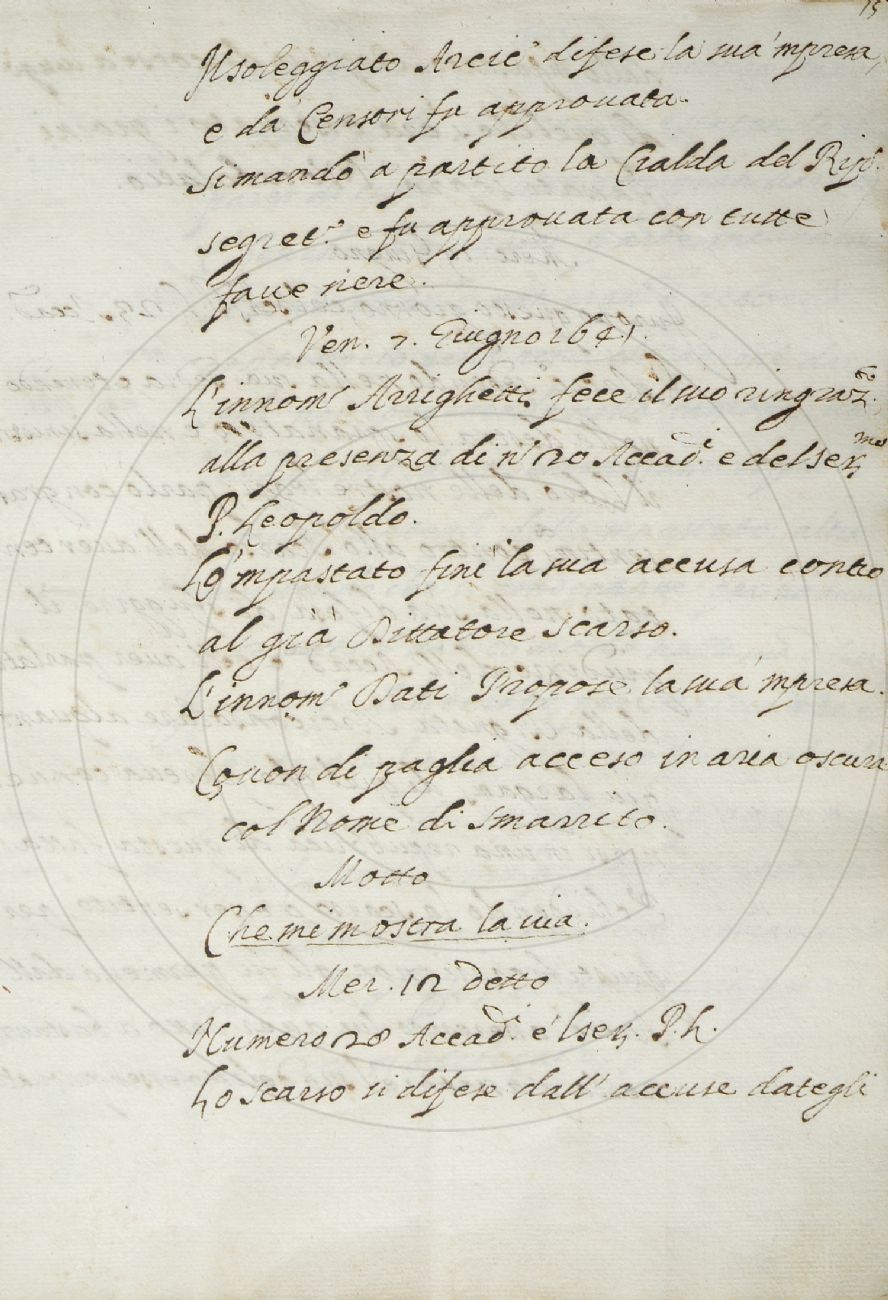 15
Il soleggiato Arcic.º difese la sua 'mpresa,
e da Censori fu approuata.
si mandò a partito la Cialda del Rip.º
segret.º e fu approuata con tutte
faue nere.
Ven. 7. Giugno 1641.
L'innom.º Arrighetti fece il suo ringraz.to
alla presenza di nº 20 Accad.ci e del ser.mo
P. Leopoldo.
Lo 'mpastato finì la sua accusa contro
al già Dittatore scarso.
L'innom.º Dati Propose la sua 'mpresa.
Couon di paglia acceso in aria oscura
col Nome di smarrito.
Motto
Che mi mostra la uia.
Mer. 12 detto
Numero 28 Accad.ci e 'l ser. P. L.
Lo scarso si difese dall' accuse dategli